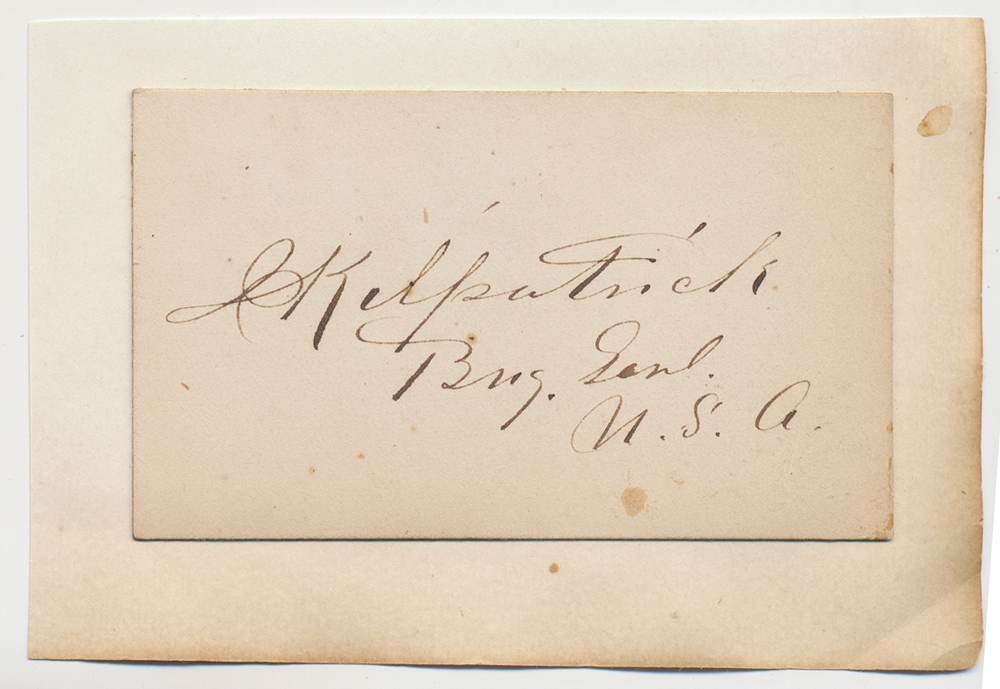 J Kilpatrick
Brig. Genl.
U. S. A.